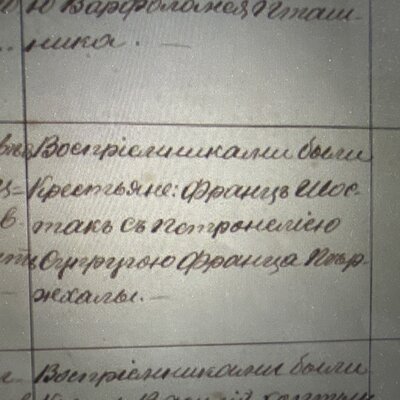 ю Варфоломея Пташ-
ника. —
Воспріемниками были
Крестьяне: Францъ Шос-
такъ съ Петронелею
Супругою Франца Пшр-
жхалы. —
Воспріемниками были